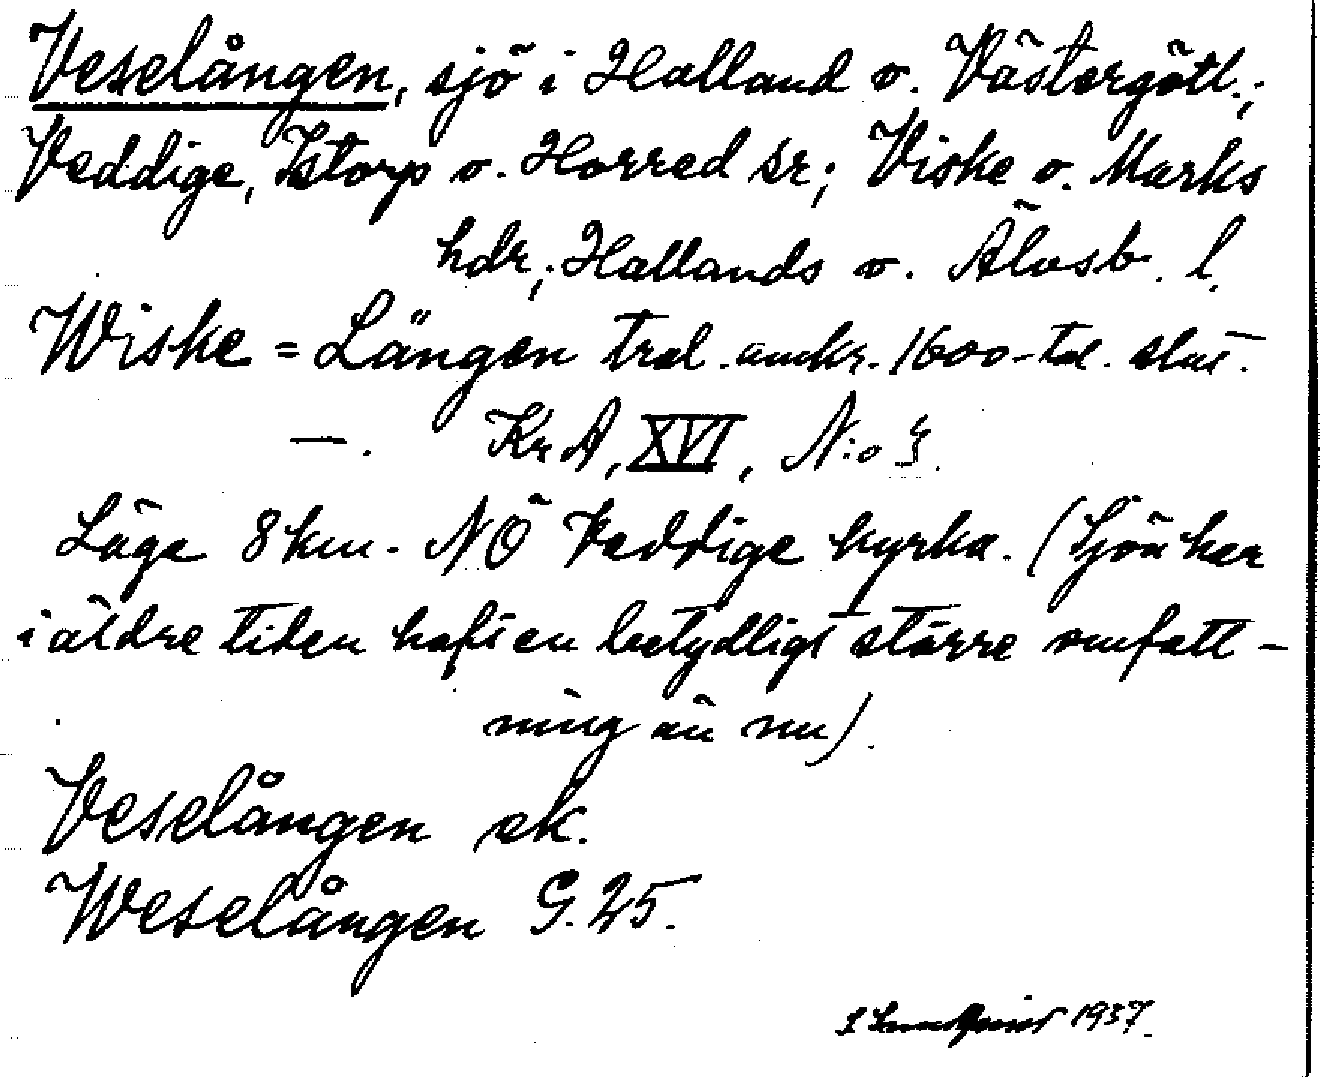 Veselången, sjö i Halland o. Västergötl.;
Veddige, Istorp o. Horred sr; Viske o. Marks
hdr; Hallands o. Älvsb. l.
Wiske = Längen trol. omkr. 1600-tal. slut.
—. KrA, XVI, N:o 3.
Läge 8 km. NÖ Veddige kyrka. (Sjön har
i äldre tiden haft en betydligt större omfatt-
ning än nu).
Veselången ek.
Weselången G. 25.
1937.